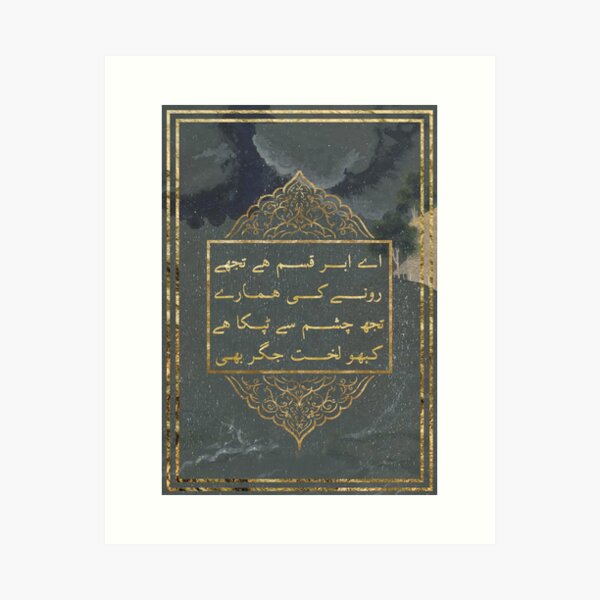 اے ابر قسم ہے تجھے
رونے کی ہمارے
تجھ چشم سے ٹپکا ہے
کبھو لخت جگر بھی